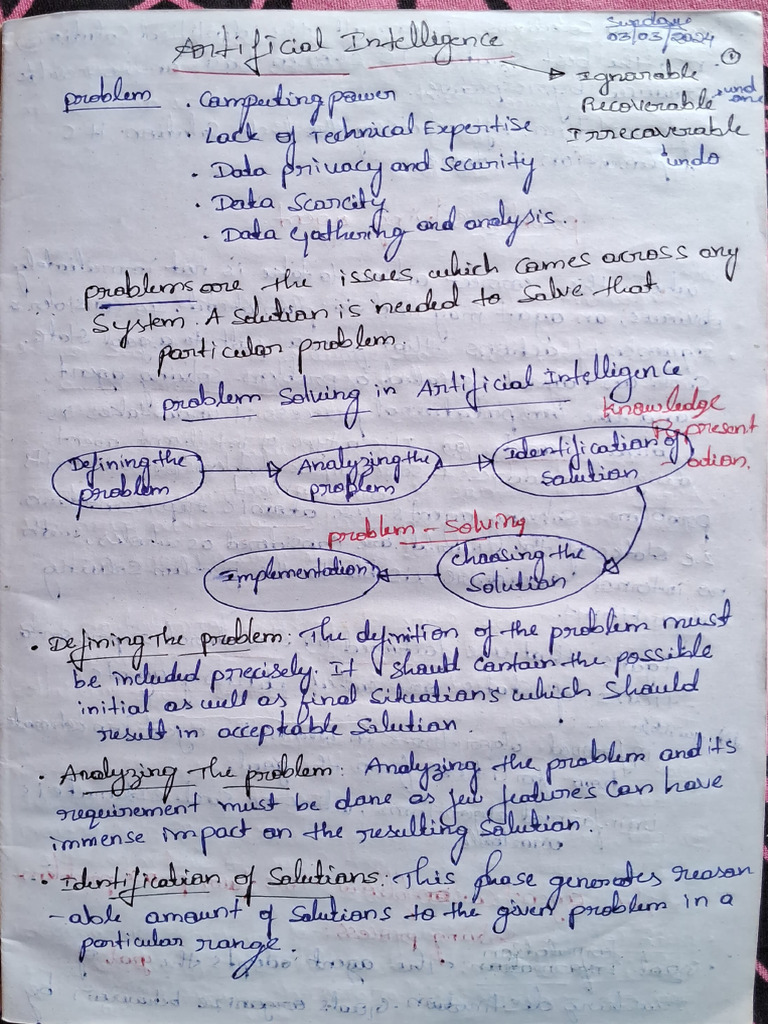 Artificial Intelligence
03/03/2024
1
Ignorable
problem . Computing power
Recoverable undone
. Lack of Technical Expertise
Irrecoverable
undo
. Data privacy and security
. Data Scarcity
. Data Gathering and analysis.
problems are the issues which comes across any
System. A Solution is needed to Solve that
particular problem.
problem Solving in Artificial Intelligence
Knowledge
Represent
-ation.
Defining the
problem
Analyzing the
problem
Identification of
Solution
problem - Solving
Choosing the
Solution
Implementation
. Defining The problem: The definition of the problem must
be included precisely. It should contain the possible
initial as well as final situations which should
result in acceptable Solution.
. Analyzing The problem: Analyzing the problem and its
requirement must be done as few features can have
immense impact on the resulting Solution.
. Identification of Solutions: This phase generates reason
-able amount of Solutions to the given problem in a
particular range.